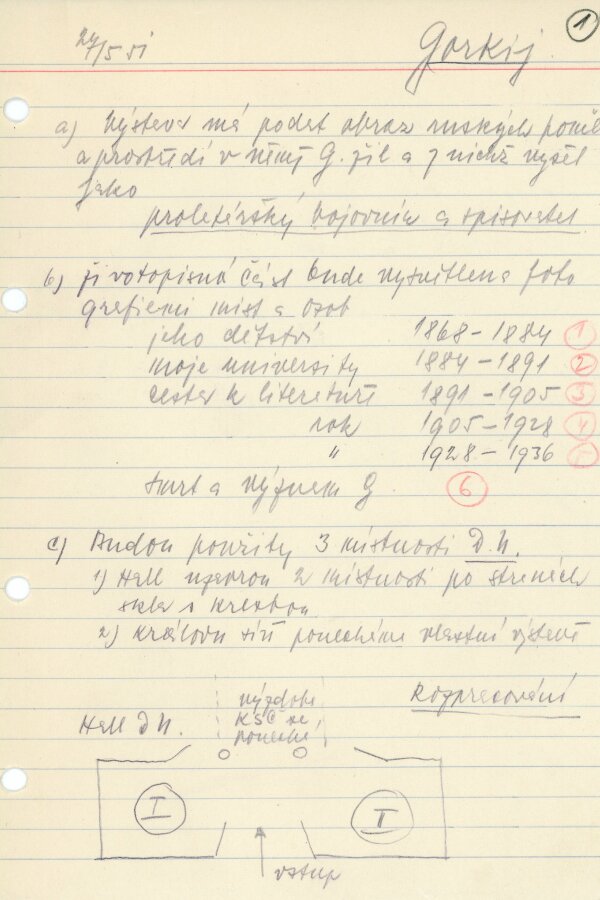 27/5 51
Gorkij.
1
a) Výstava má podat obraz ruských poměrů
a prostředí v němž G. žil a z nichž vyšel
jako
proletářský bojovník a spisovatel
b) životopisná část bude vysvětlena foto
grafiemi míst a osob
jeho dětství 1868 – 1884 1
moje university 1884 – 1891 2
cesta k literatuře 1891 – 1905 3
rok 1905 – 1928 4
" 1928 – 1936 5
smrt a význam G. 6
c) Budou použity 3 místnosti D.U.
1) Hall 2 místnosti po stranách
skla s kresbou
2) síň ponecháme vlastní výstavě
Rozpracování
výzdoba
KSČ se
ponechá
Hall D U.
I
II
vstup